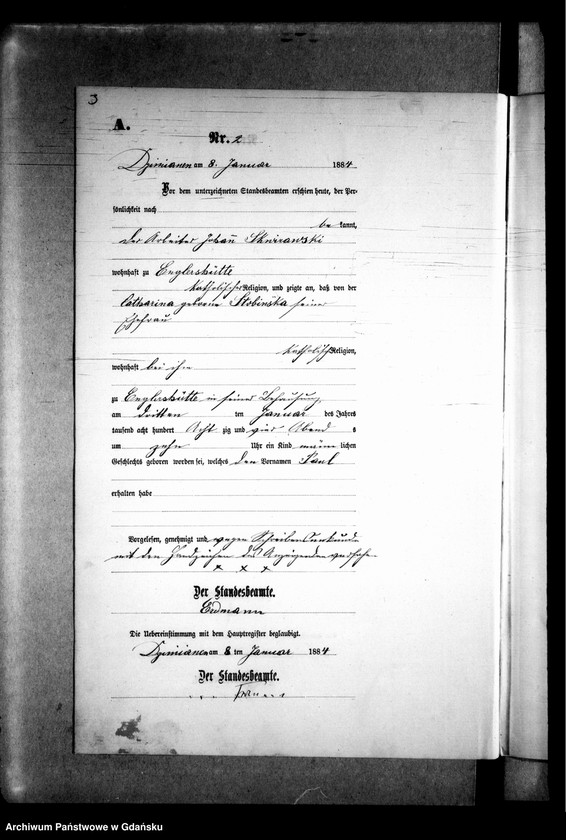 3
A.
Nr. 2
Dzimianen am 8. Januar 1884
Vor dem unterzeichneten Standesbeamten erschien heute, der Per-
sönlichkeit nach
be kannt,
der Arbeiter Johann
wohnhaft zu Englershütte
katholischer Religion, und zeigte an, daß von der
Catharina geborene seiner
Ehefrau
katholischer Religion,
wohnhaft bei ihm
zu Englershütte in seiner Behausung
am dritten ten Januar des Jahres
tausend acht hundert Acht zig und vier Abend s
um zehn Uhr ein Kind männ lichen
Geschlechts geboren worden sei, welches den Vornamen Paul
erhalten habe
Vorgelesen, genehmigt und wegen Schreibensunkunde
mit den Handzeichen des Anzeigenden versehen
x x x
Der Standesbeamte.
Erdmann
Die Uebereinstimmung mit dem Hauptregister beglaubigt.
Dzimianen am 8 ten Januar 1884
Der Standesbeamte.
Archiwum Państwowe w Gdańsku